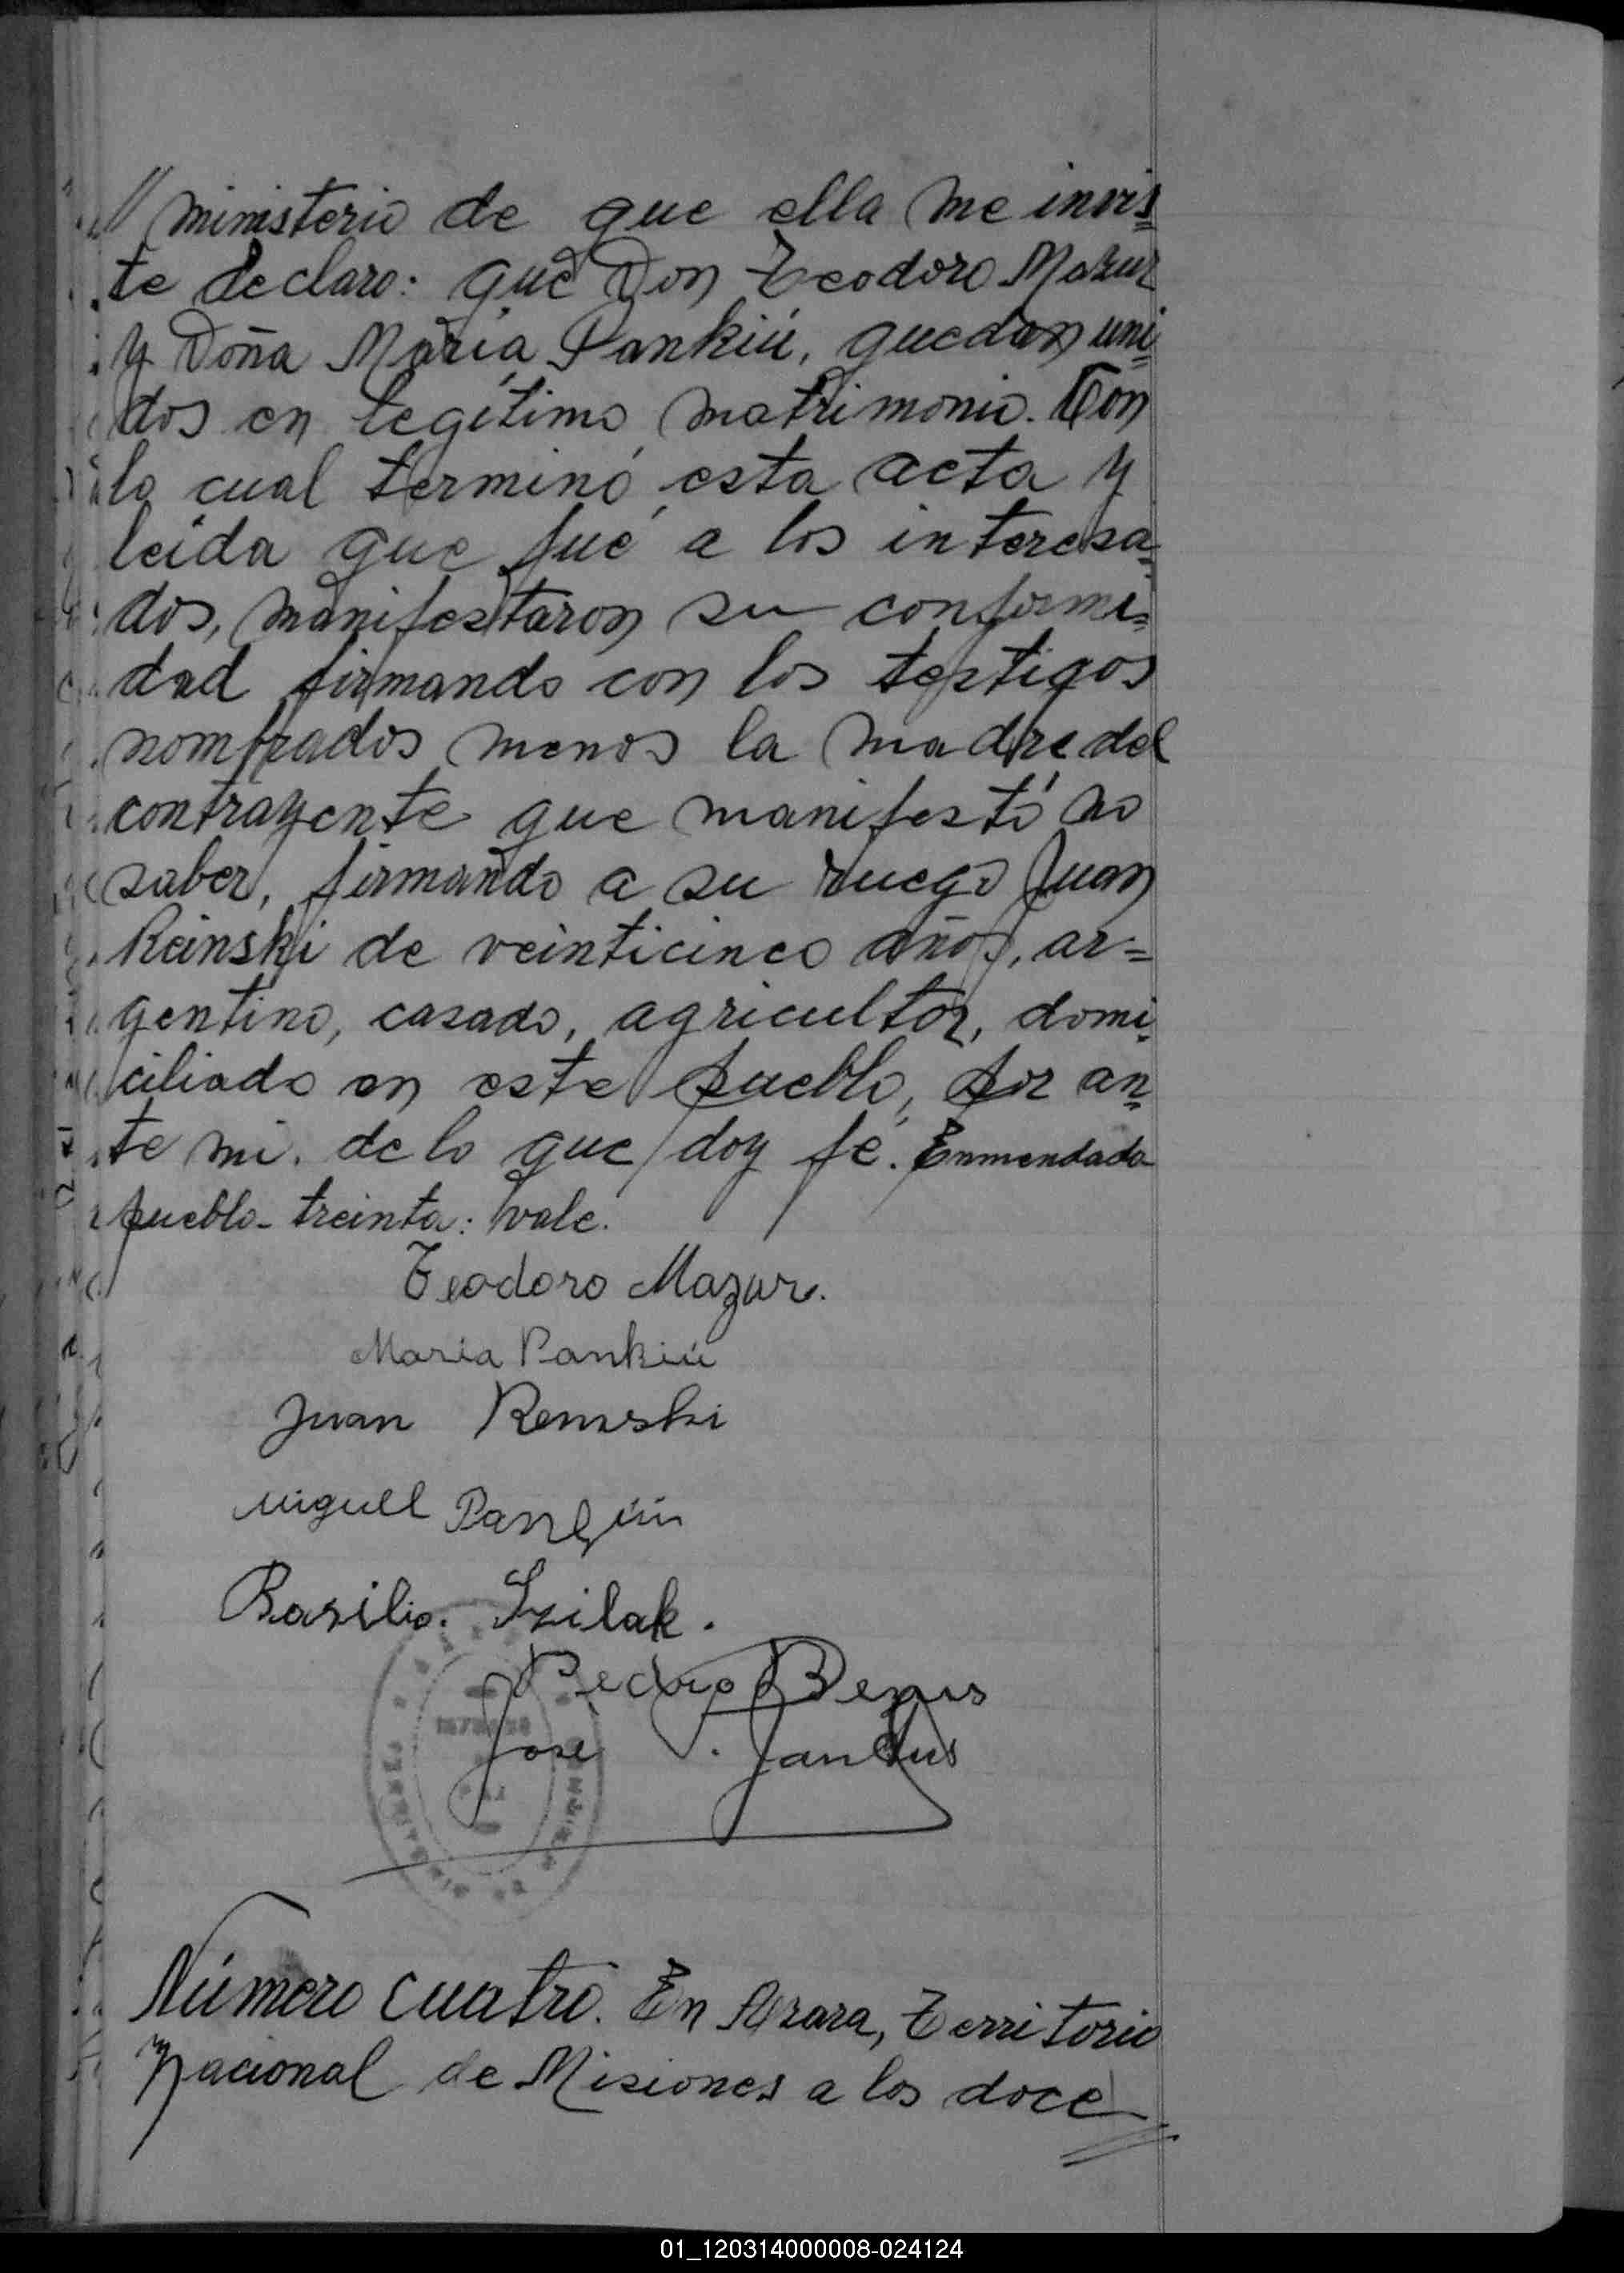 // ministerio de que ella me invis=
te declaro: que Don Teodoro Mazur
y Doña María Pankiú, quedan uni=
dos en legítimo matrimonio. Con
lo cual terminó esta acta y
leída que fué a los interesa=
dos, manifestaron su conformi=
dad firmando con los testigos
nombrados menos la madre del
contrayente que manifestó no
saber, firmando a su ruego Juan
Reinski de veinticinco años, ar=
gentino, casado, agricultor, domi=
ciliado en este pueblo, por an=
te mi. de lo que doy fé. Enmendado
pueblo- treinta: vale.
Teodoro Mazur.
Maria Pankiú
Juan Remski
Miguel
Basilio. Szilak.
Pedro
Jose
Número cuatro. En Azara, Territorio
Nacional de Misiones a los doce
01_120314000008-024124